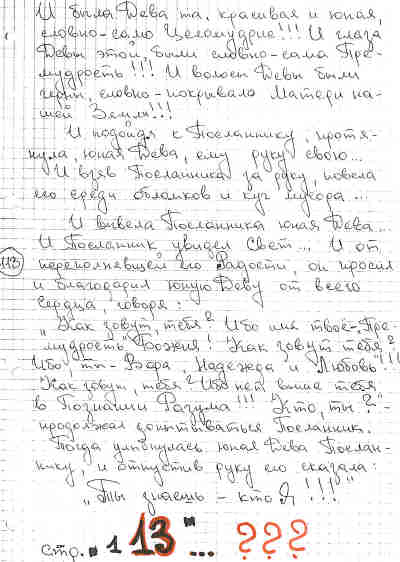 И была Дева та, красивая и юная,
словно-само Целомудрие!!! И глаза
Девы этой, были словно-сама Пре-
мудрость!!! И волосы Девы были
черны, словно-покрывало Матери на-
шей Земли!!!
И подойдя к Посланнику, протя-
нула, юная Дева, ему руку свою...
И взяв Посланника за руку, повела
его среди обломков и куч мусора...
И вывела Посланника юная Дева...
И Посланник увидел Свет... И от
113
переполнявшей его Радости, он просил
и благодарил юную Деву от всего
Сердца, говоря:
"Как зовут, тебя? Ибо имя твоё-Пре-
мудрость Божия! Как зовут тебя?
Ибо ты-Вера, Надежда и Любовь"!!!
"Как зовут, тебя? Ибо нет выше тебя
в Познании Разума!!! Кто, ты?"-
продолжал допытываться Посланник.
Тогда улыбнулась юная Дева Послан-
нику, и отпустив руку его сказала:
"Ты знаешь - кто Я!!!"
Стр. "113"... ???